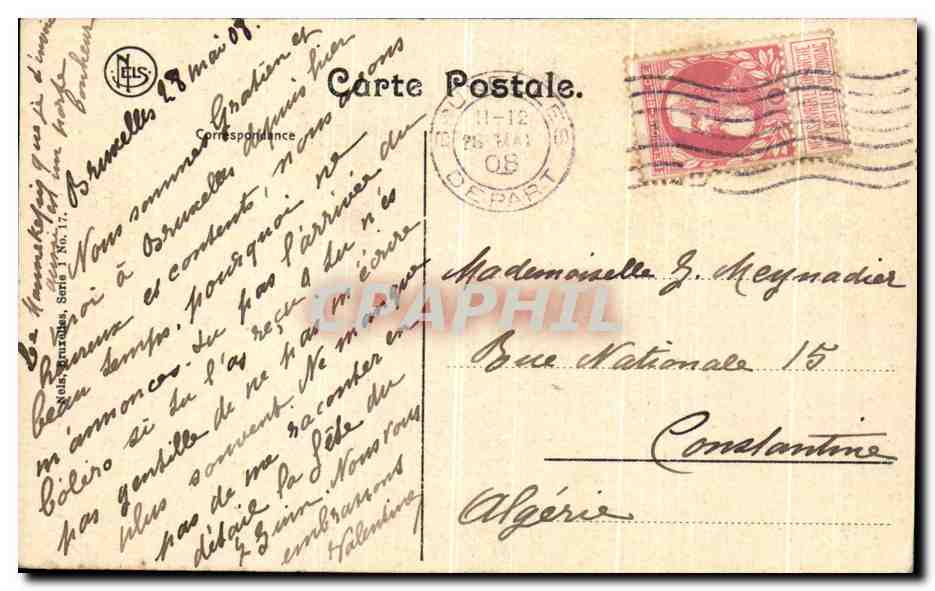 Carte Postale.
Correspondance
NELS
Nels, Bruxelles, Serie 1 No. 17.
Bruxelles 28 mai 08.
Nous sommes Gratien et
moi à Bruxelles depuis hier
heureux et contents, nous avons
beau temps. pourquoi ne
m'annonces-tu pas l'arrivée du
boléro si tu l'as reçu? tu n'es
pas gentille de ne pas m'écrire
plus souvent. Ne manque
pas de me raconter en
détail la fête du
7 Juin. Nous vous
embrassons
Valentine
Le Mannekepis que je t'envoie
aussi est un porte
bonheur
11-12
28 MAI
08
DEPART
Mademoiselle G. Meynadier
Rue Nationale 15
Constantine
Algérie
CPAPHIL